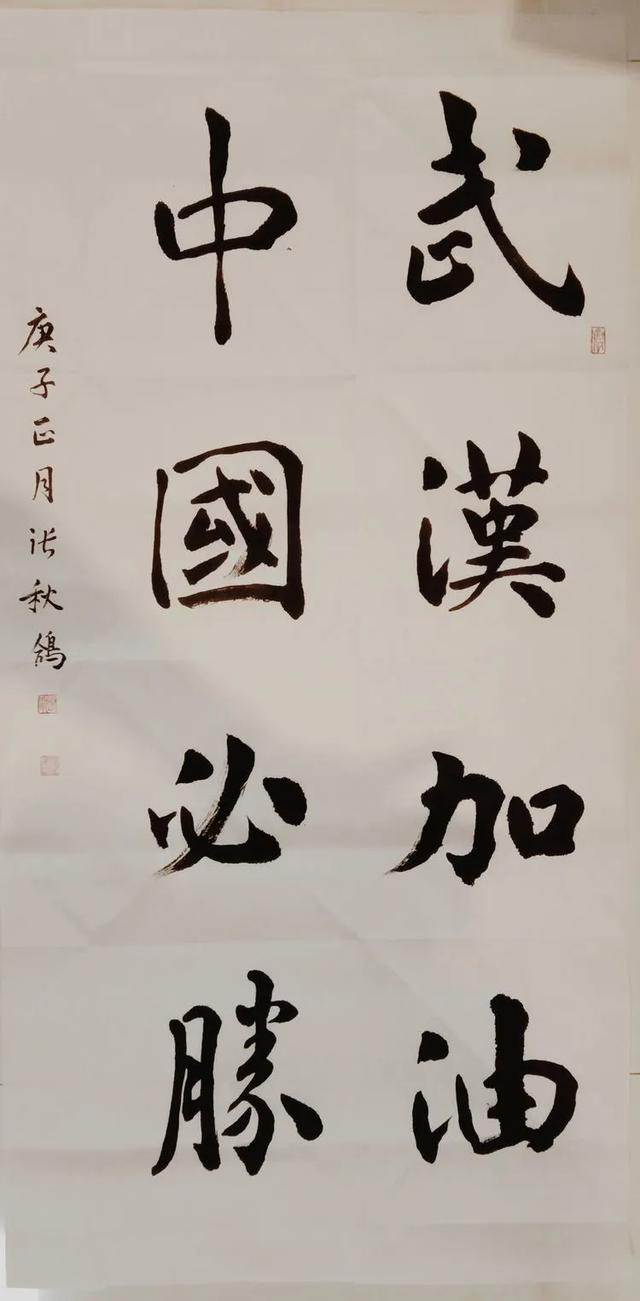 武漢加油
中國必勝
庚子正月张秋鴿